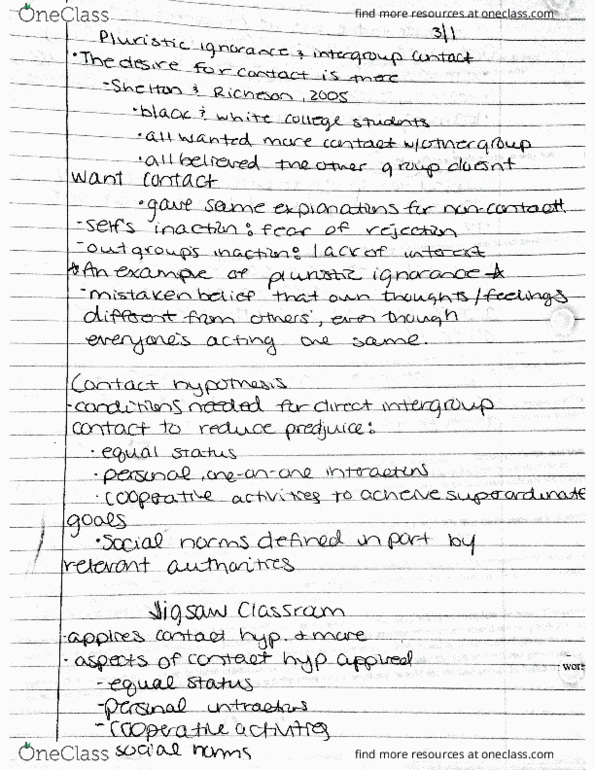 OneClass
find more resources at oneclass.com
3/1
Pluristic ignorance & intergroup contact
• The desire for contact is there
- Shelton & Richeson, 2005
• black & white college students
• all wanted more contact w/other group
• all believed the other group doesnt
want contact
• gave same explanations for non-contact
- self's inaction: fear of rejection
- outgroups inaction: lack of interest
* An example of pluristic ignorance *
- mistaken belief that own thoughts/feelings
different from others', even though
everyone's acting the same.
Contact hypothesis
- conditions needed for direct intergroup
contact to reduce predjuice:
• equal status
• personal, one-on-one interactions
• cooperative activities to acheive superordinate
goals
• Social norms defined in part by
relevant authorities
Jigsaw Classroom
- applies contact hyp. & more
• aspects of contact hyp applied
- equal status
- personal interactions
- cooperative activities
social norms
OneClass
find more resources at oneclass.com